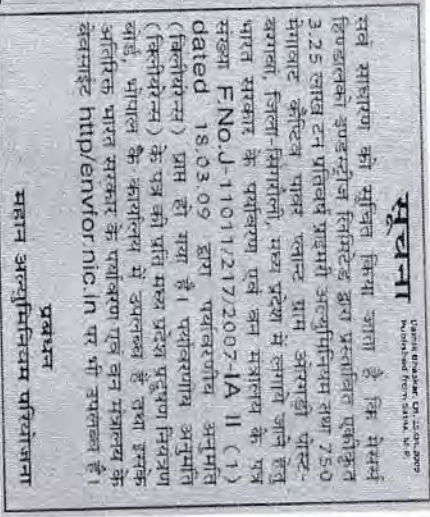 Dainik Bhaskar, Dt. 25.04.2009
Published from Satna, M.P.
सूचना
सर्व साधारण को सूचित किया जाता है कि मेसर्स
हिण्डालको इण्डस्ट्रीज लिमिटेड द्वारा प्रस्तावित एकीकृत
3.25 लाख टन प्रतिवर्ष प्राइमरी अल्युमिनियम तथा 750
मेगावाट कैप्टिव पावर प्लान्ट ग्राम ओरगड़ी पोस्ट-
बरगवां, जिला-सिंगरौली, मध्य प्रदेश में लगाये जाने हेतु
भारत सरकार के पर्यावरण एवं वन मंत्रालय के पत्र
संख्या F.No.J-11011/217/2007-IA II (1)
dated 18.03.09 द्वारा पर्यावरणीय अनुमति
(क्लियरेन्स) प्राप्त हो गया है। पर्यावरणीय अनुमति
(क्लियरेन्स) के पत्र की प्रति मध्य प्रदेश प्रदूषण नियंत्रण
बोर्ड, भोपाल के कार्यालय में उपलब्ध है तथा इसके
अतिरिक्त भारत सरकार के पर्यावरण एवं वन मंत्रालय के
वेबसाईट http/envfor.nic.in पर भी उपलब्ध है।
प्रबन्धन
महान अल्युमिनियम परियोजना